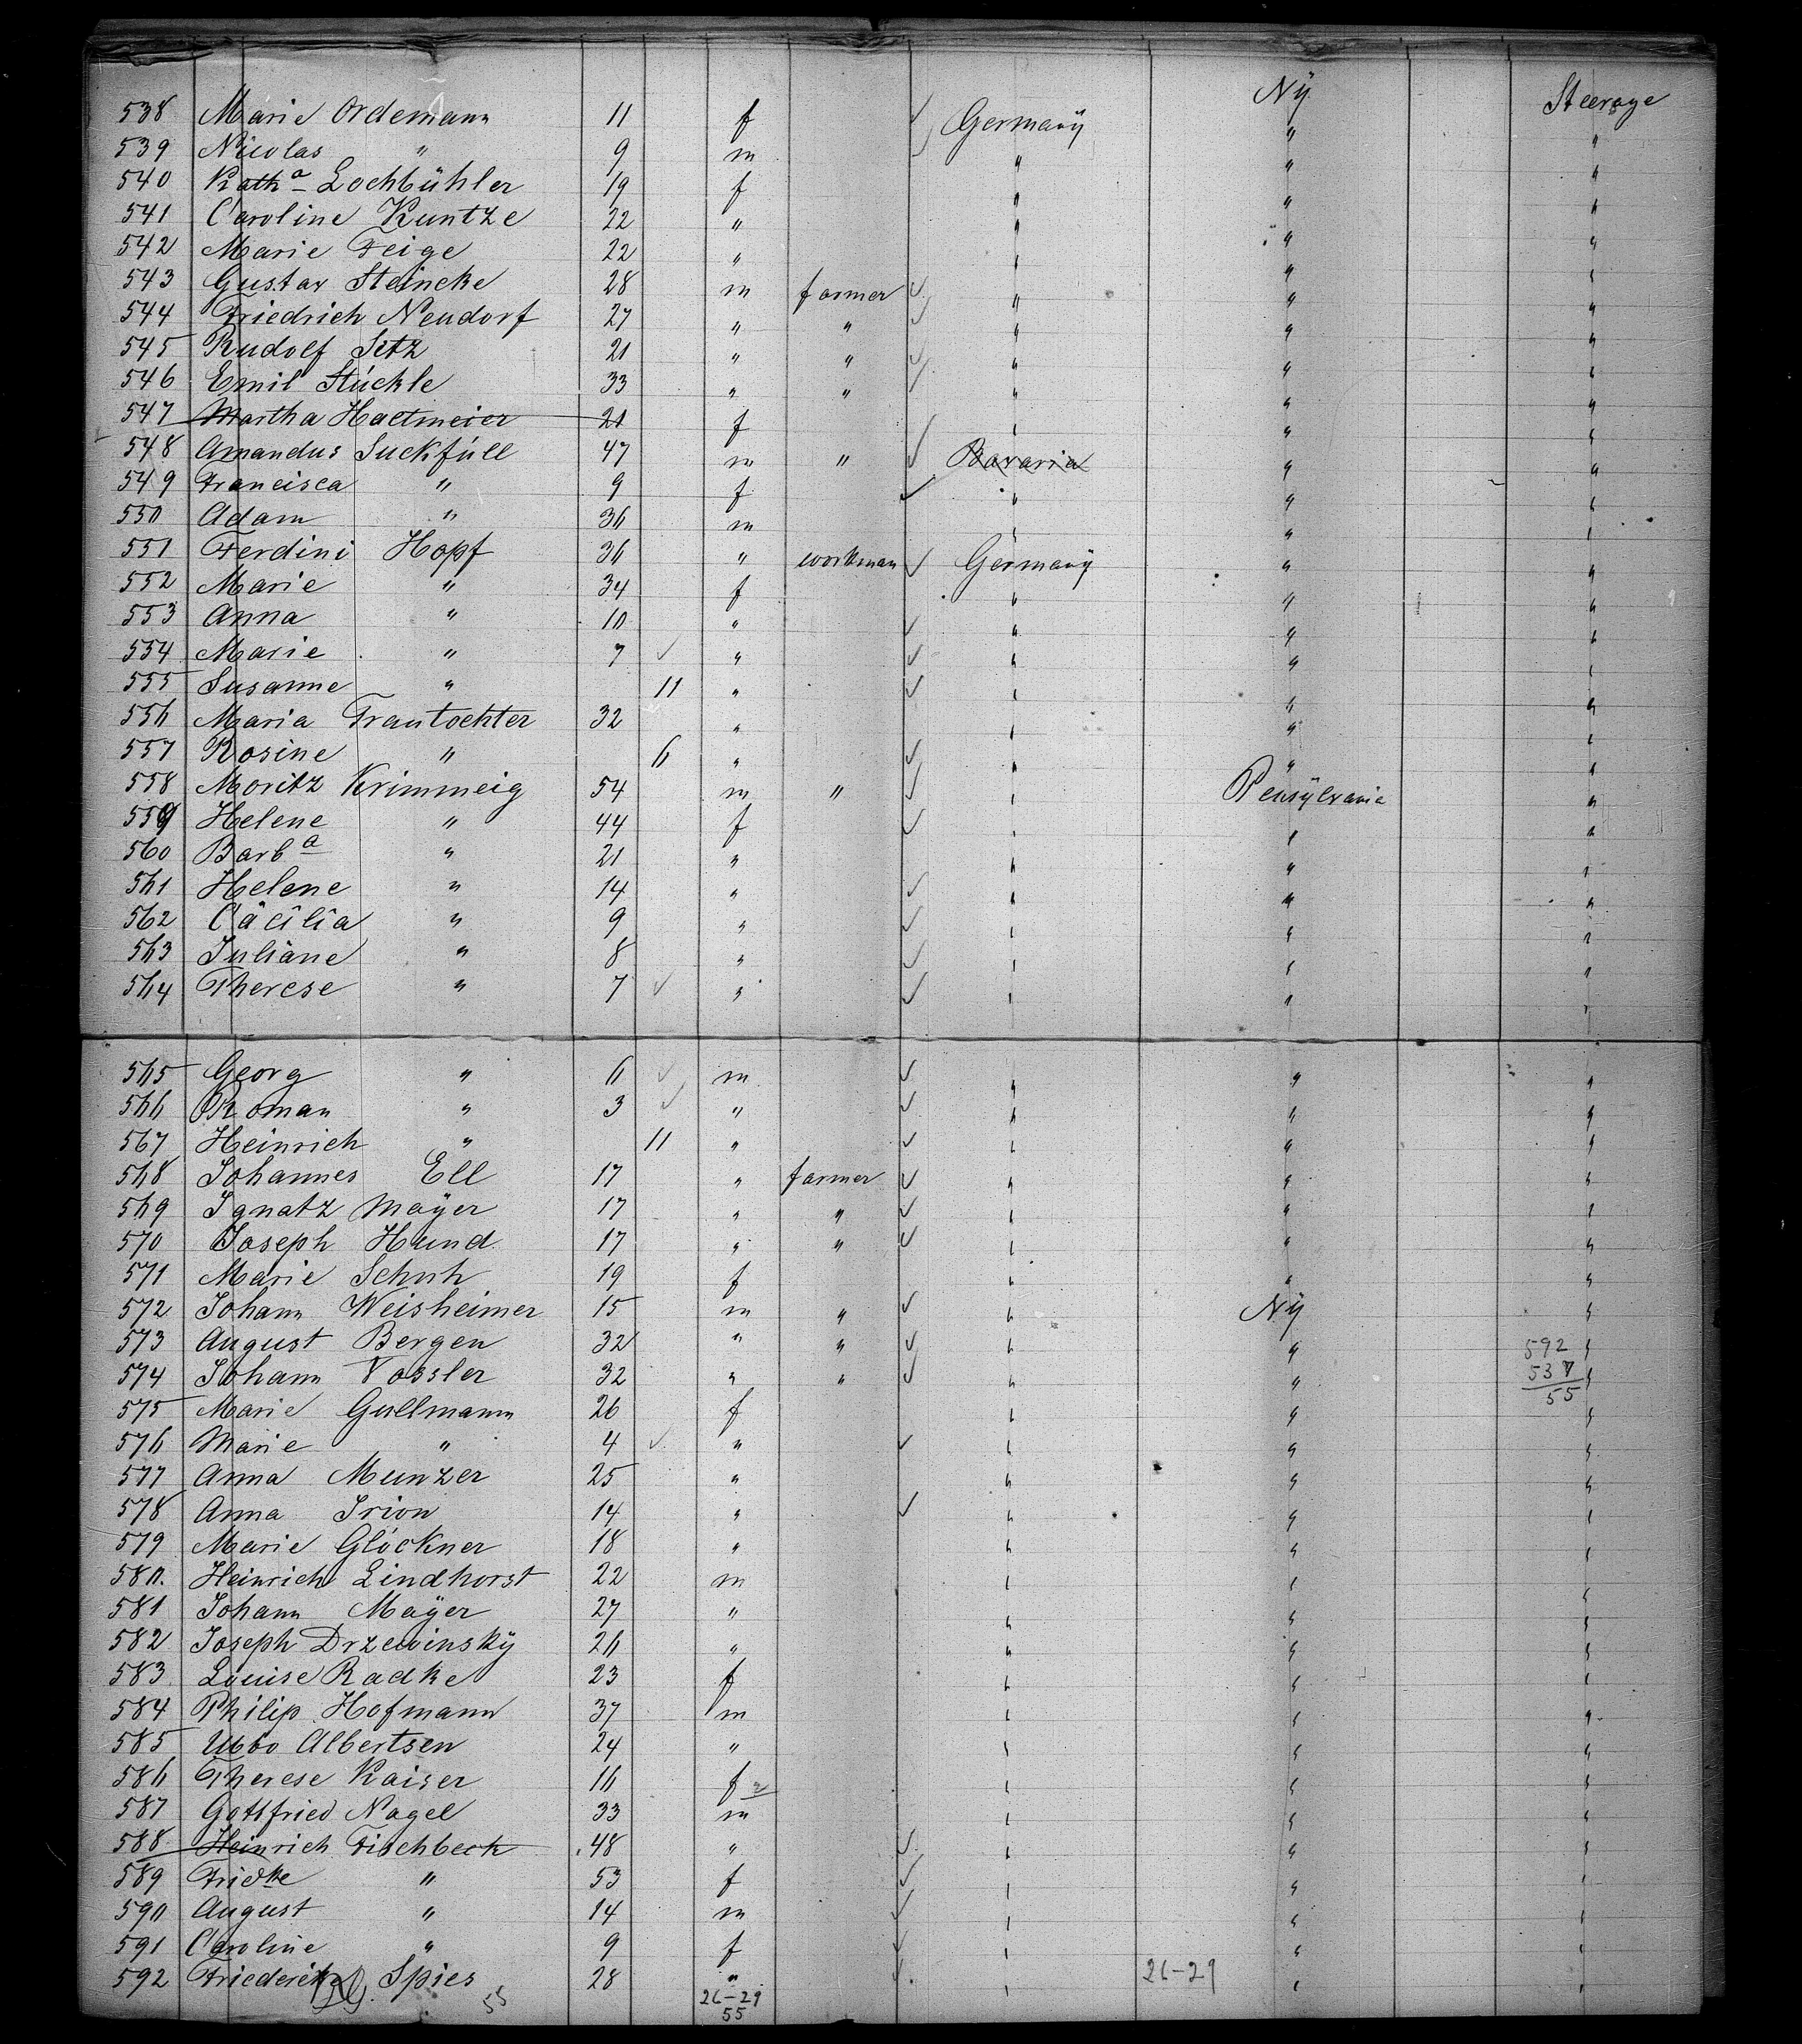 Ny Steerage
538 Marie Ordemann 11 f Germany " "
539 Nicolas " 9 m " " "
540 Kath a Lochbühler 19 f " " "
541 Caroline Kuntze 22 " " " "
542 Marie Feige 22 " " " "
543 Gustav Steincke 28 m farmer " " "
544 Friedrich Neudorf 27 " " " " "
545 Rudolf Sitz 21 " " " " "
546 Emil Stückle 33 " " " " "
547 Martha Haltmeier 21 f " " "
548 Amandus Suckfüll 47 m " Bavaria " "
549 Francisca " 9 f " " "
550 Adam " 36 m " " "
551 Ferdini Hopf 36 " workman Germany " "
552 Marie " 34 f " " "
553 Anna " 10 " " " "
554 Marie " 7 " " " "
555 Susanne " 11 " " " "
556 Maria Frautochter 32 " " " "
557 Rosine " 6 " " " "
558 Moritz Krimmeig 54 m " " Pensylvania "
559 Helene " 44 f " " "
560 Barb a " 21 " " " "
561 Helene " 14 " " " "
562 Cäcilia " 9 " " " "
563 Juliane " 8 " " " "
564 Therese " 7 " " " "
565 Georg " 6 m " " "
566 Roman " 3 " " " "
567 Heinrich " 11 " " " "
568 Johannes Ell 17 " farmer " " "
569 Ignatz Mayer 17 " " " " "
570 Joseph Hund 17 " " " " "
571 Marie Schuh 19 f " " "
572 Johann Weisheimer 15 m " " Ny "
573 August Bergen 32 " " " " 592 "
574 Johann Vossler 32 " " " " 537 "
55
575 Marie Gullmann 26 f " " "
576 Marie " 4 " " " "
577 Anna Munzer 25 " " " "
578 Anna Irion 14 " " " "
579 Marie Glöckner 18 " " " "
580. Heinrich Lindhorst 22 m " " "
581 Johann Mayer 27 " " " "
582 Joseph Drzewinsky 26 " " " "
583 Louise Radke 23 f " " "
584 Philip Hofmann 37 m " " "
585 Ubbo Albertsen 24 " " " "
586 Therese Kaiser 16 f " " "
587 Gottfried Nagel 33 m " " "
588 Heinrich Fischbeck 48 " " " "
589 Fridke " 53 f " " "
590 August " 14 m " " "
591 Caroline " 9 f " " "
592 Friederike Spies 28 " " 26-29 " "
55 26-29
55